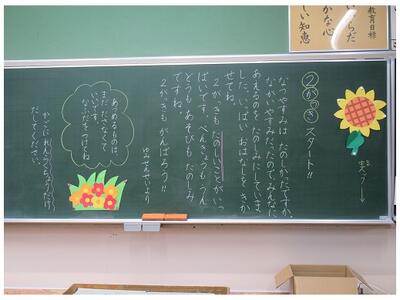 教育目標
らだ
かな心
しい知恵
2がっき スタート!!
なつやすみは たのしかったですか。
ながいやすみだったので、みんなに
あえるのを たのしみにしていま
した。いっぱい おはなしを きか
せてね。
2がっきも たのしいことが いっ
ぱいです。べんきょうも うん
どうも あそびも たのしみ
ですね。
2がっきも がんばろう!!
ゆみせんせいより
あつめるものは、
まだ ださなくて
いいです。
かごに れんらくちょうだけ
だしてください。